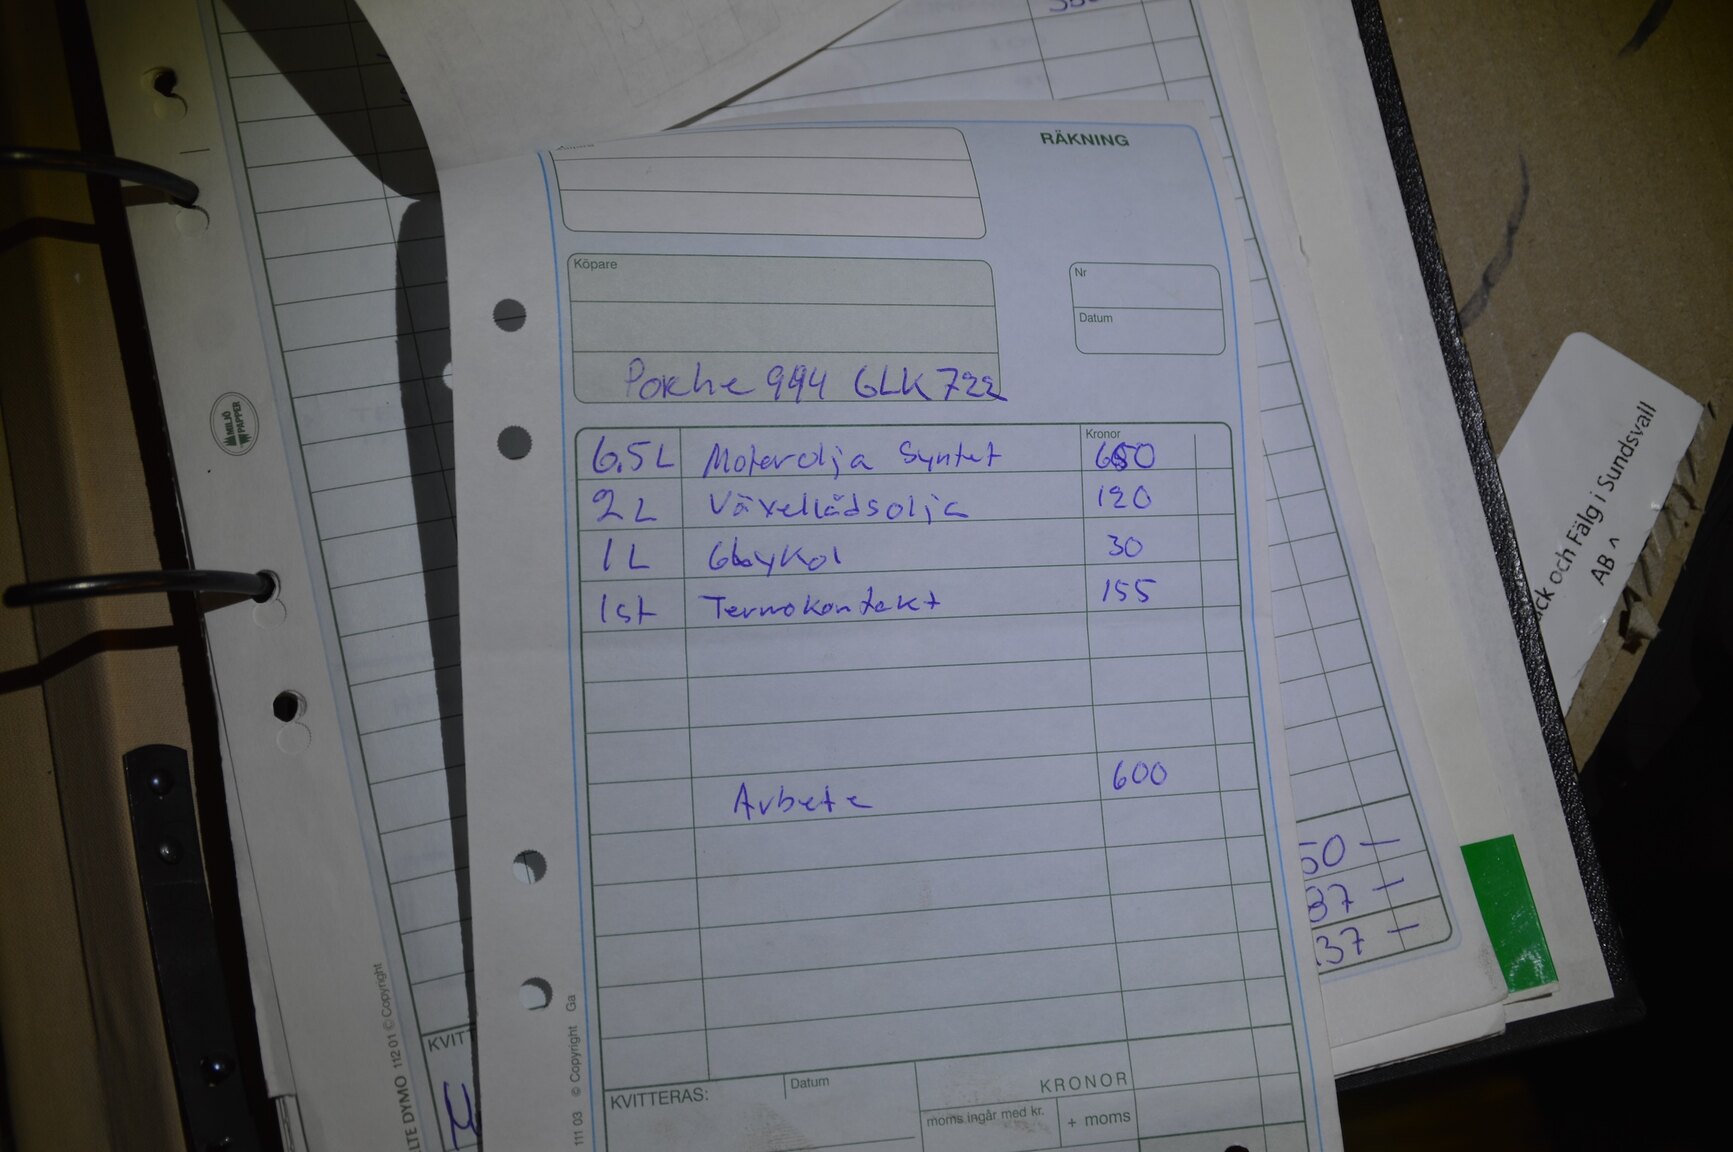 RÄKNING
Köpare
Nr
Datum
Porche 944 GLK722
Kronor
6.5L Motorolja Syntet 650
2L Växellådsolja 120
1L Glykol 30
1st Termokontakt 155
Arbete 600
KVITTERAS:
Datum
KRONOR
moms ingår med kr.
+ moms
111 03 © Copyright Ga
MILJÖ PAPPER
LTE DYMO 112 01 © Copyright
KVITT
50 —
37 —
37 —
ck och Fälg i Sundsvall
AB ^